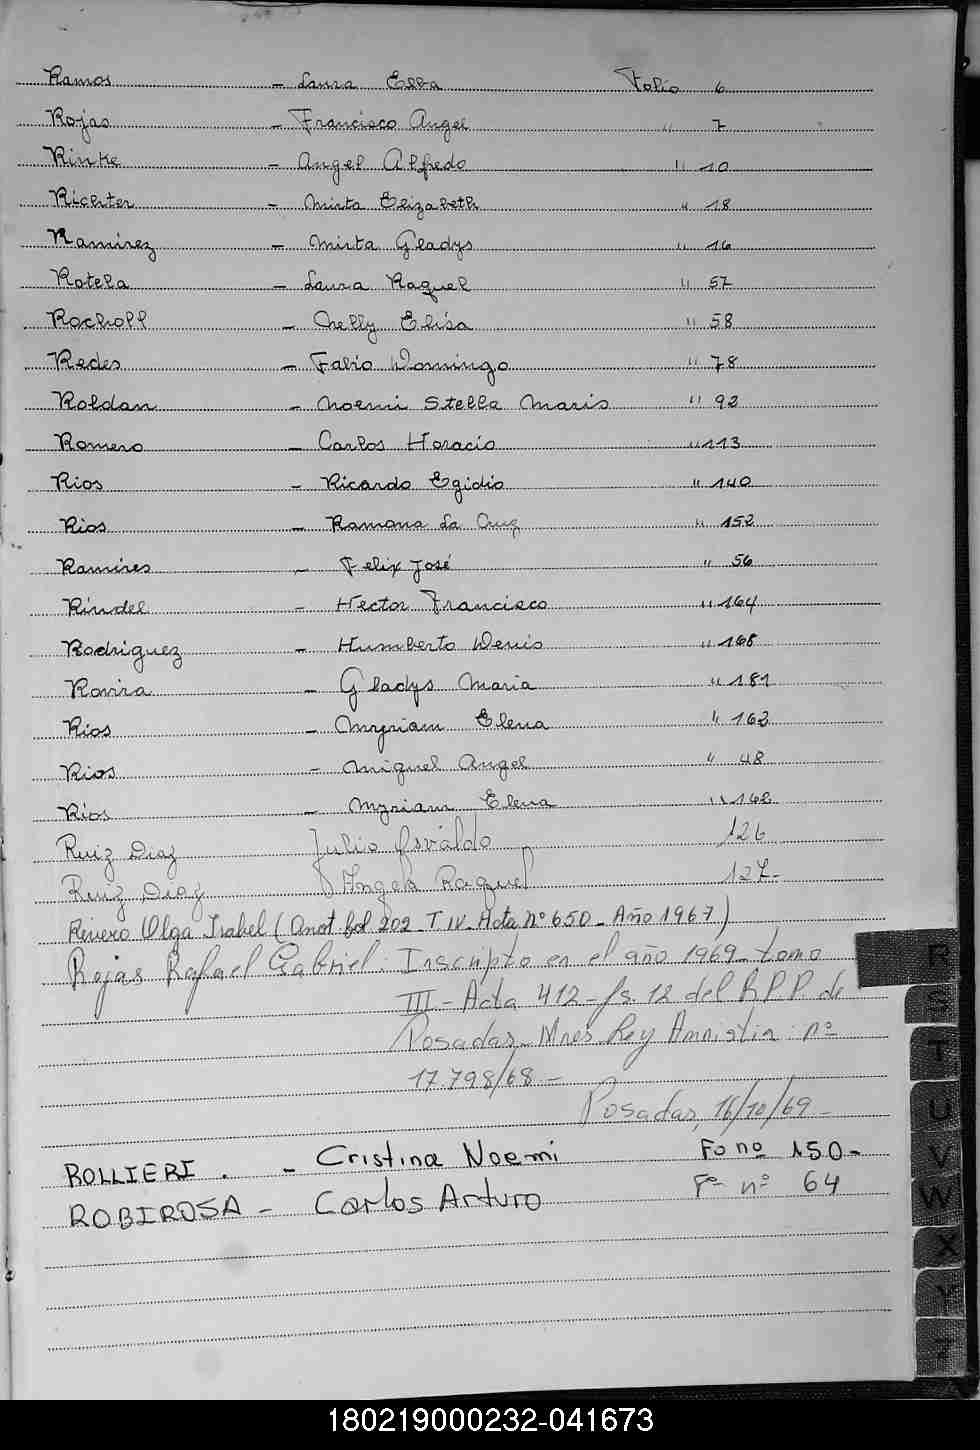 Ramos - Laura Elba Folio 6
Rojas - Francisco Angel " 7
Rinke - Angel Alfredo " 10
Richter - Mirta Elizabeth " 18
Ramirez - Mirta Gladys " 16
Rotela - Laura Raquel " 57
Rocholl - Nelly Elisa " 58
Redes - Fabio Domingo " 78
Roldan - Noemi Stella Maris " 92
Romero - Carlos Horacio " 113
Rios - Ricardo Egidio " 140
Rios - Ramona La Cruz " 152
Ramires - Felix José " 56
Rindel - Hector Francisco " 164
Rodriguez - Humberto Denis " 168
Rovira - Gladys Maria " 181
Rios - Myriam Elena " 162
Rios - Miguel Angel " 48
Rios - Myriam Elena " 162
Ruiz Diaz Julio Osvaldo 126
Ruiz Diaz Angela Raquel 127-
Rivero Olga Isabel (Anot fol 202 T IV. Acta Nº 650 - Año 1967)
Rojas Rafael Gabriel. Inscripto en el año 1969 - tomo
III - Acta 412 - fs. 12 del R.P.P. de
Posadas - Mnes Ley Amnistia: nº
17.798/68 -
Posadas, 16/10/69 -
ROLLIERI . - Cristina Noemi Fo nº 150-
ROBIROSA - Carlos Arturo Fº nº 64
R
S
T
U
V
W
X
Y
Z
180219000232-041673